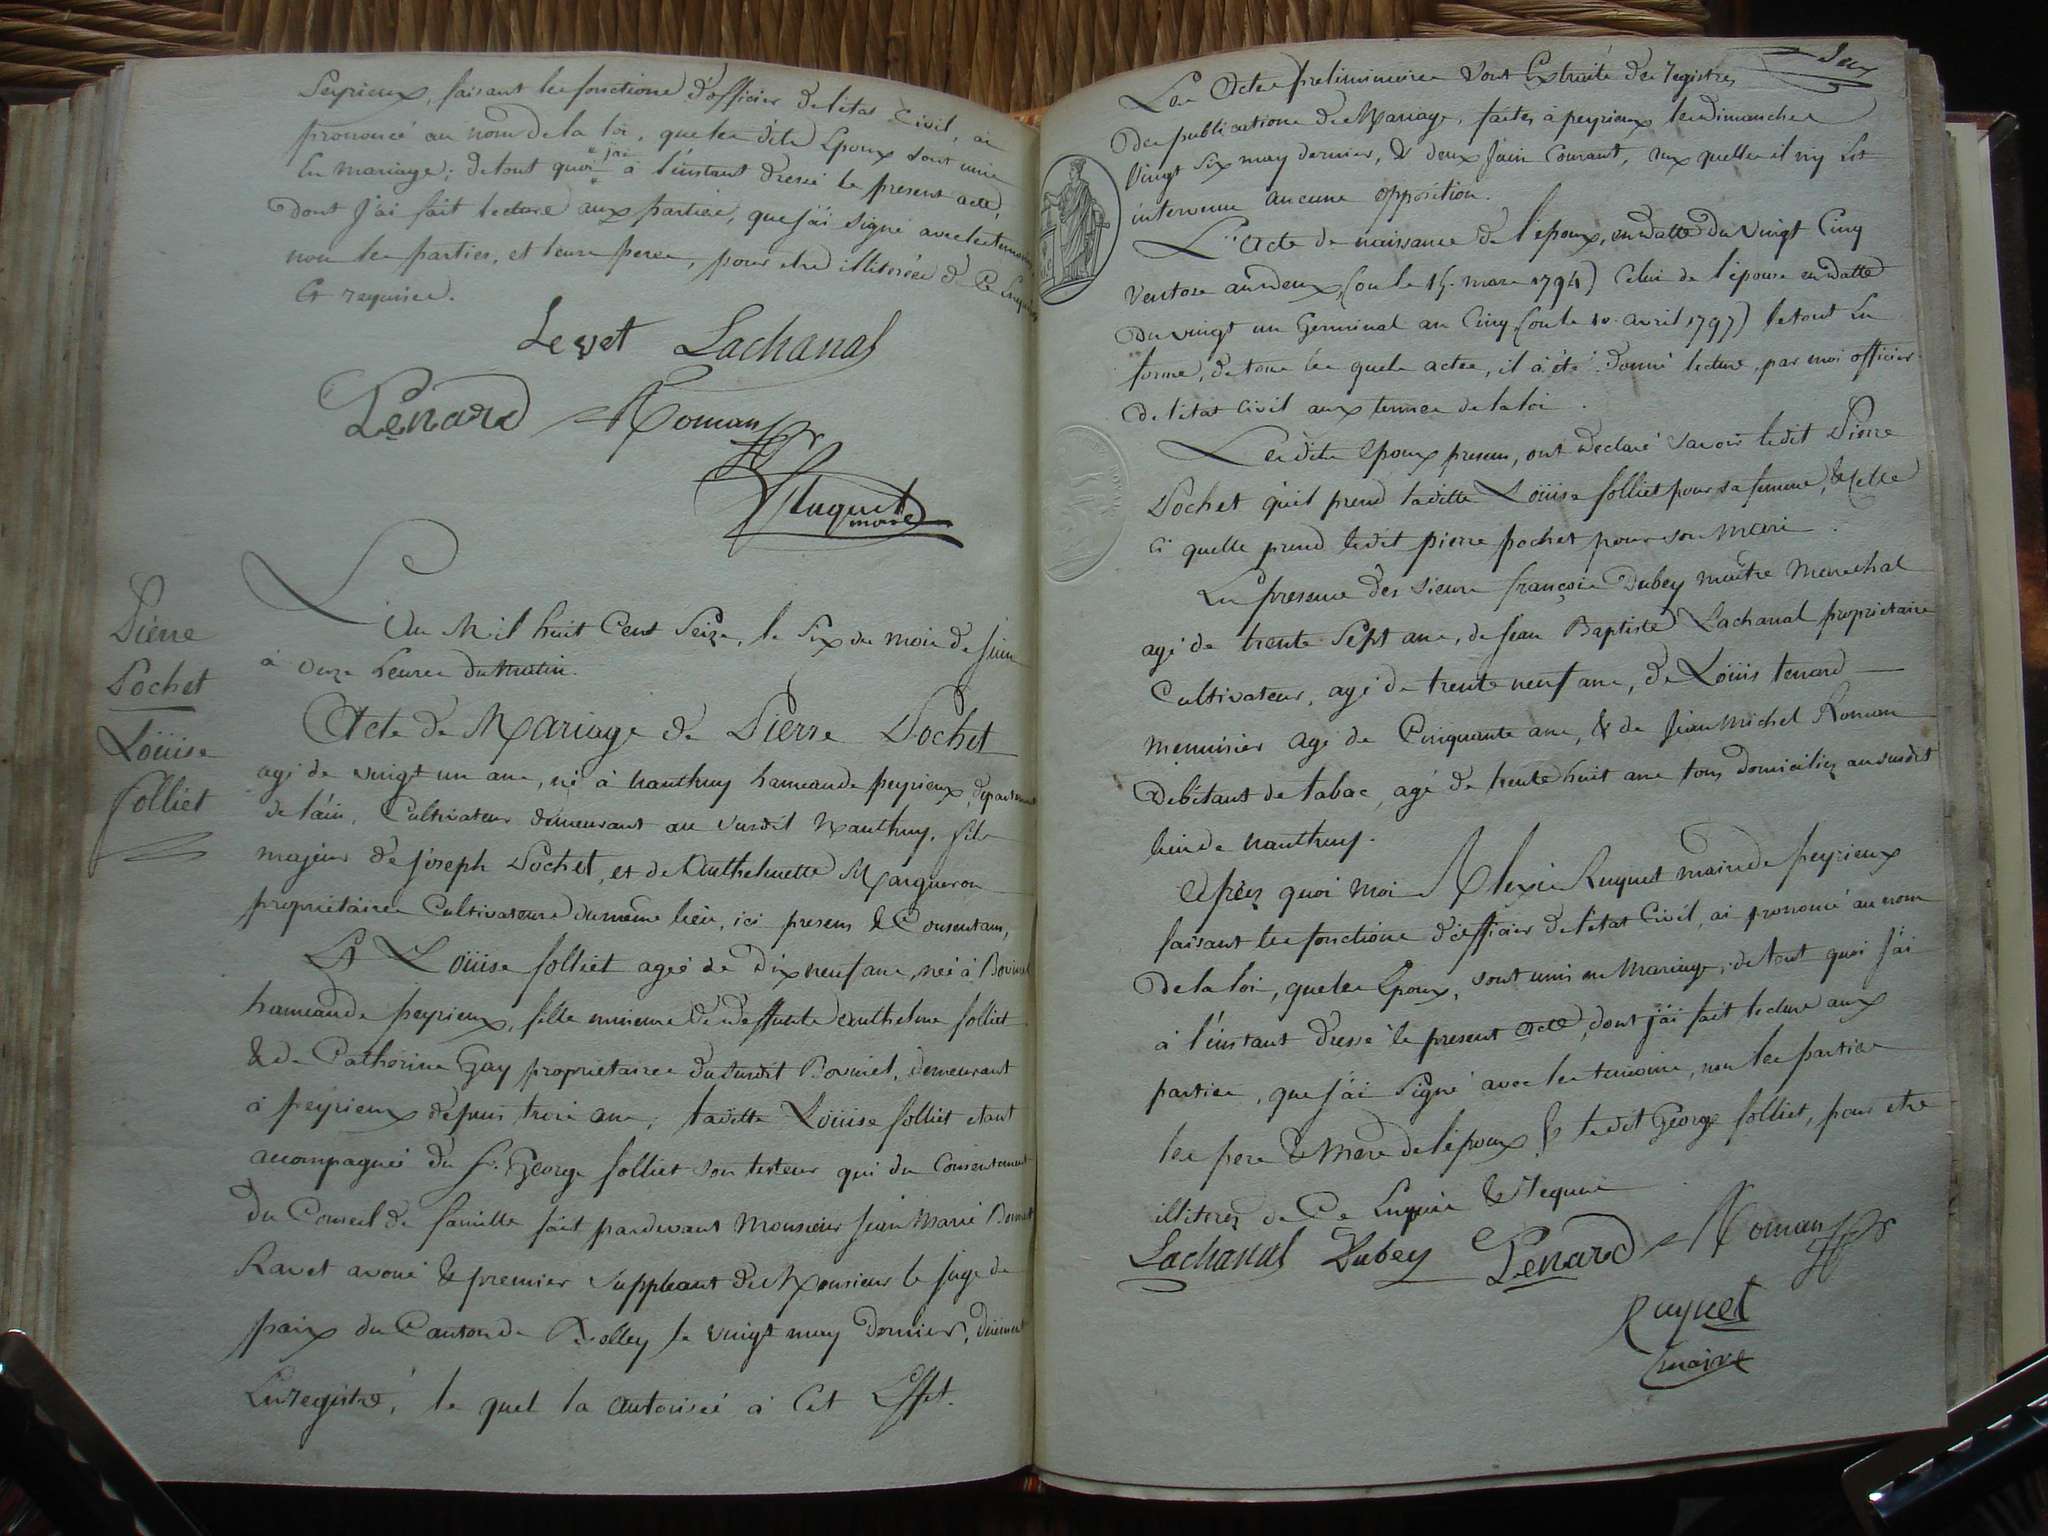 Peyrieux, faisant les fonctions d'officier de l'etat Civil, ai
prononcé au nom de la loi, que les dits Epoux sont unis
En mariage; de tout quoi j'ai à l'instant dressé le present acte,
dont j'ai fait lecture aux parties, que j'ai signé avec les temoins
non les parties, et leurs peres, pour etre illiterés de Ce Enquis
Et requis.
Levet Lachanal
Penard Roman
Ruquet
maire
Pierre
Pochet
Loüise
folliet
L'an Mil huit Cent Seize, le Six du mois de Juin
à onze heures du Matin.
Acte de Mariage de Pierre Pochet
agé de vingt un ans, né à nanthuy hameau de peyrieux, departement
de l'ain, Cultivateur demeurant au susdit Nanthuy, fils
majeur de joseph Pochet, et de Anthelmette Margueron
propriétaires Cultivateurs du même lieu, ici presens & Consentans,
Et Loüise folliet ageé de Dix neuf ans, neé à Bovinel
hameau de peyrieux, fille mineure de deffunts Anthelme folliet
& de Catherine Gay propriétaires du susdit Bovinel, demeurant
à peyrieux depuis trois ans, ladite Loüise folliet etant
accompagneé du Sr. George folliet son tuteur qui du Consentement
du Conseil de famille fait pardevant Monsieur Jean Marie
Ravet avoué & premier Suppleant de Monsieur le juge de
paix du Canton de Belley le vingt may Dernier, düement
Enregistré, le quel la autoriseé à Cet Effet.
Deux
Les Actes preliminaires Sont Extraits des registres
des publications de Mariage, faites à peyrieux les dimanches
Vingt Six may dernier, & deux Juin Courant, aux quelles il n'y Est
intervenue aucune opposition.
L'Acte de naissance de l'époux, en datte du Vingt Cinq
Ventose an deux, (ou le 15. mars 1794) Celui de l'épouse en datte
du vingt un Germinal an Cinq (ou le 10 avril 1797) le tout En
forme, de tous les quels actes, il à été donné lecture, par moi officier
de l'état Civil aux termes de la loi.
Les dits Epoux presens, ont declaré savoir ledit Pierre
Pochet qu'il prend ladite Loüise folliet pour sa femme, & Celle
Ci quelle prend ledit pierre pochet pour son Mari.
En presence des Sieurs françois Dubey maître Marechal
agé de trente Sept ans, de Jean Baptiste Lachanal proprietaire
Cultivateur, agé de trente neuf ans, de Loüis tenard
menuisier agé de Cinquante ans, & de Jean Michel Roman
Debitant de tabac, agé de trente huit ans tous domiciliés au susdit
lieu de nanthuy.
Après quoi moi Alexis Ruquet maire de peyrieux
faisant les fonctions d'officier de l'état Civil, ai prononcé au nom
de la loi, que les Epoux, sont unis en Mariage, de tout quoi j'ai
à l'instant dressé le present Acte, dont j'ai fait lecture aux
parties, que j'ai Signé avec les temoins, non les parties
les pere & Mere de l'époux & ledit George folliet, pour etre
illiterés de Ce Enquis & Requis
Lachanal Dubey Penard Roman
Ruquet
maire